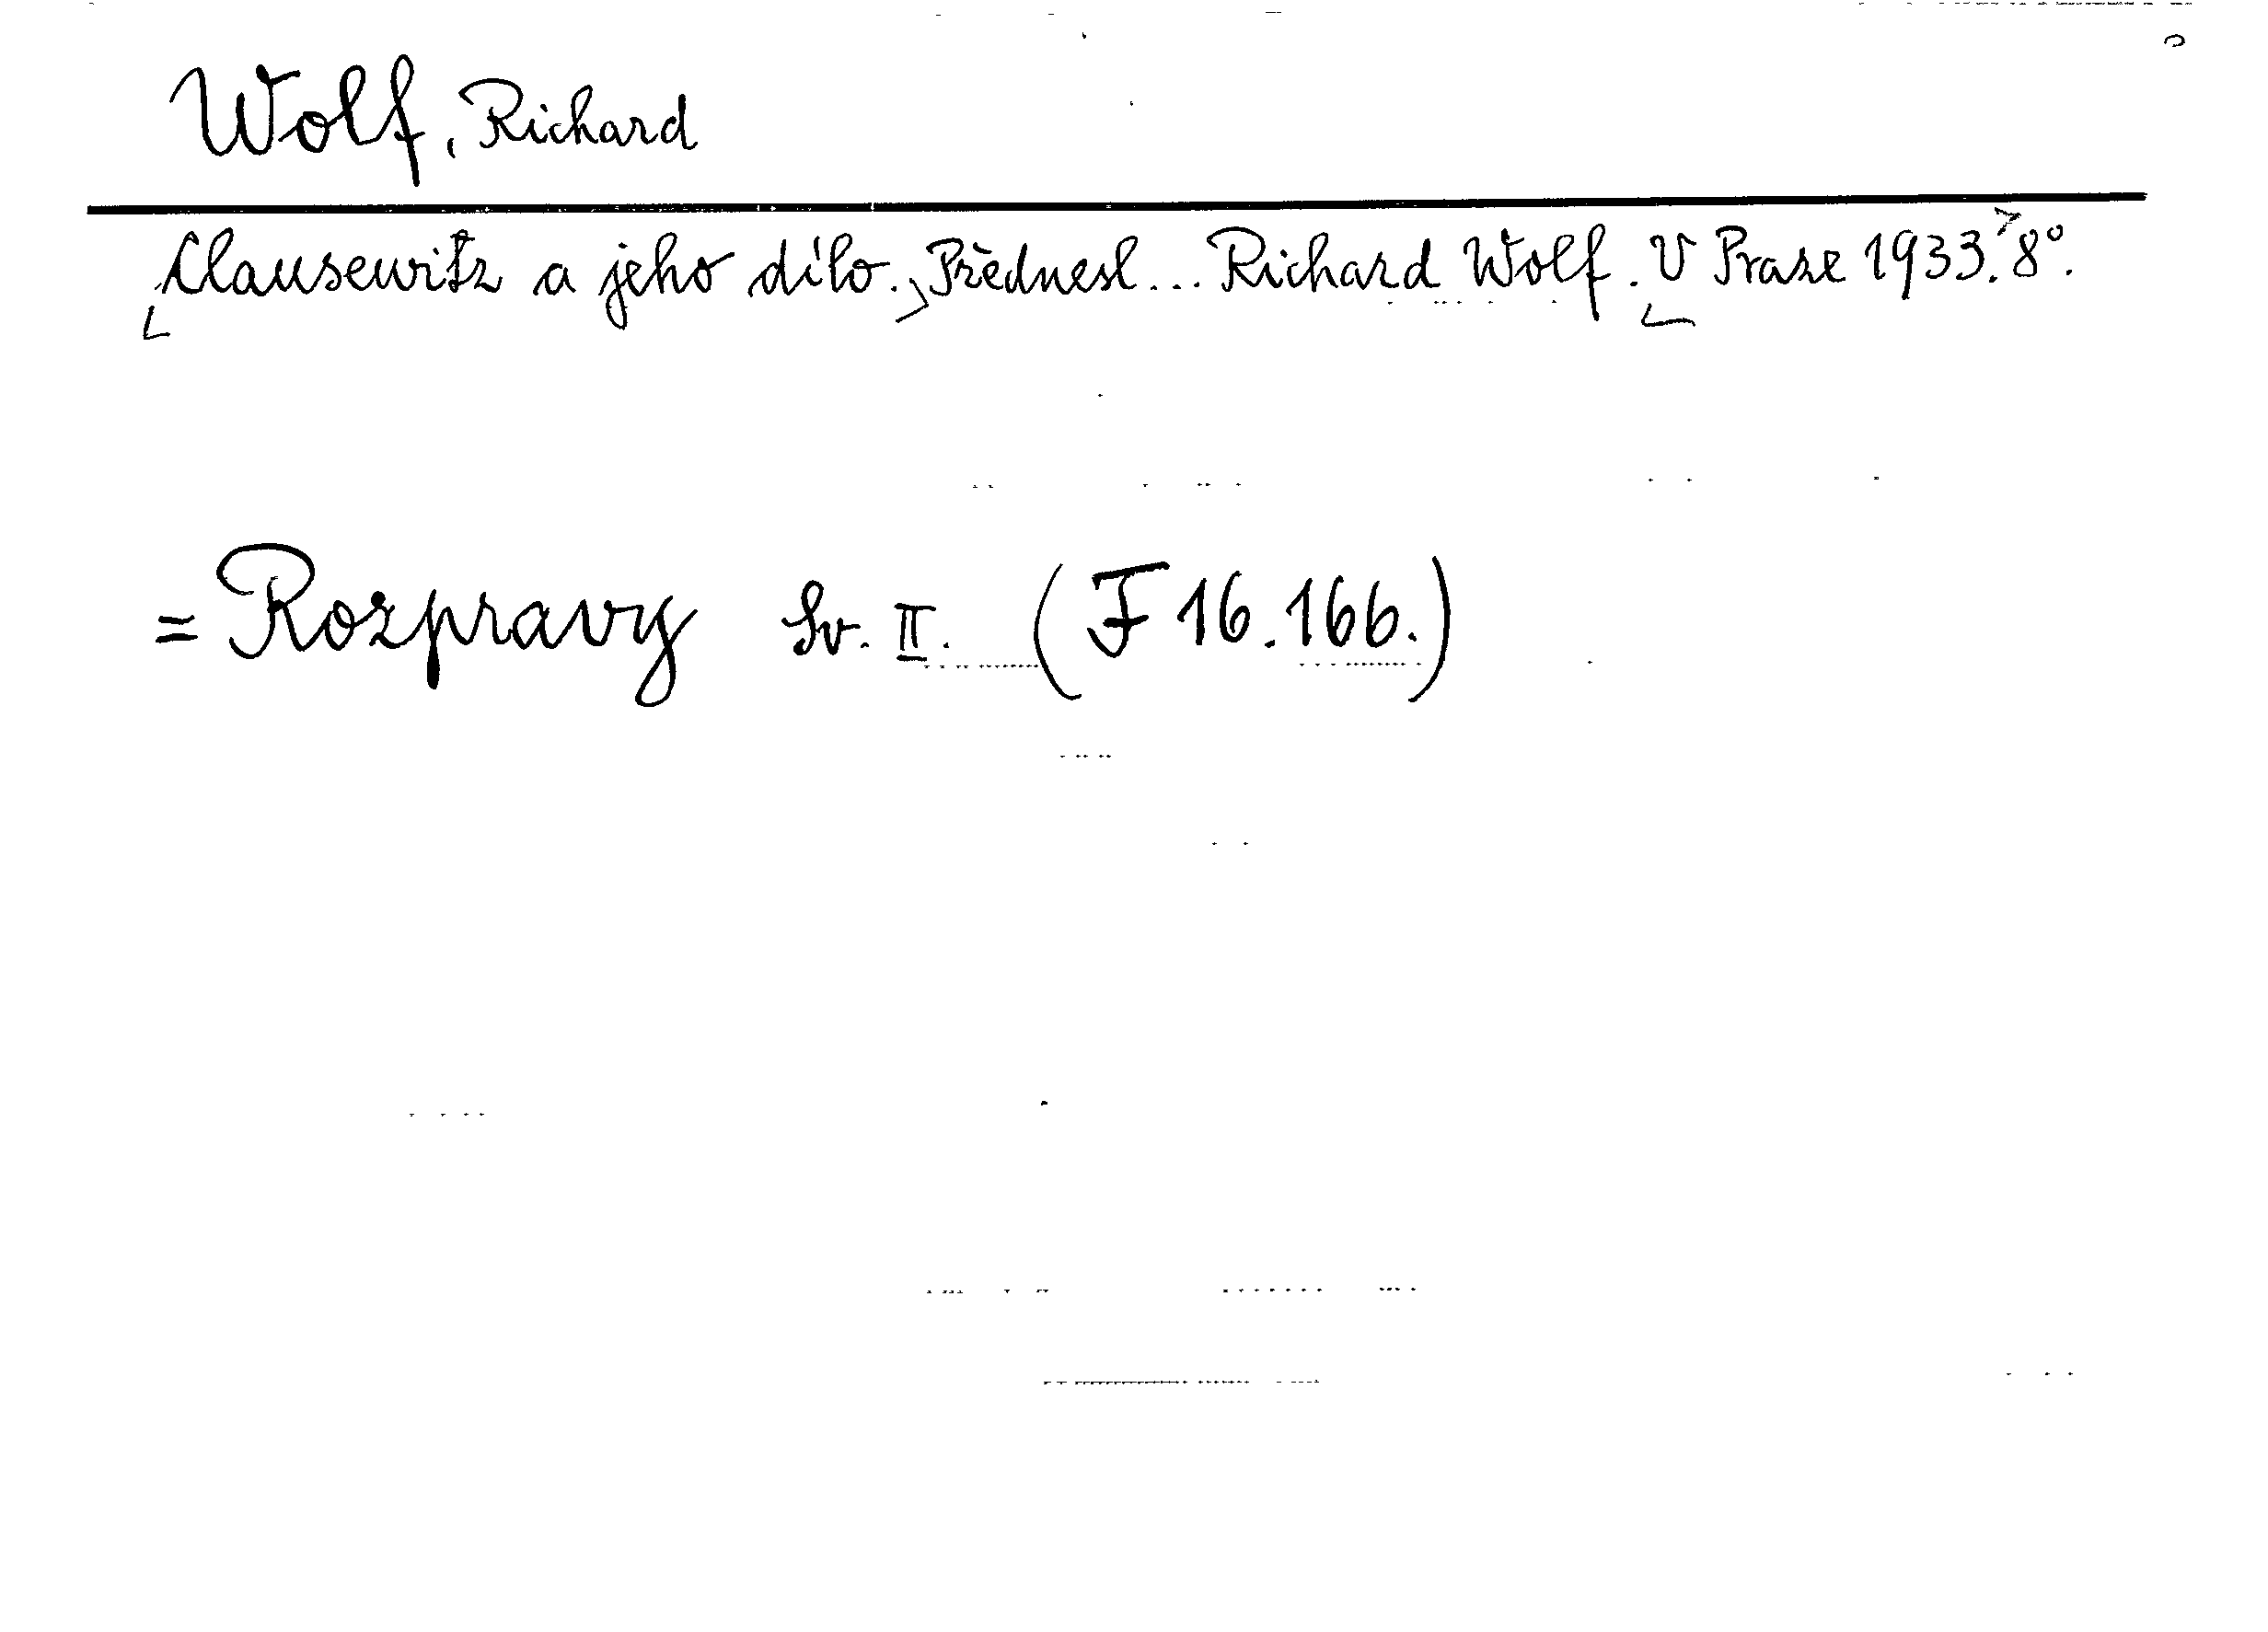 Wolf, Richard
Clausewitz a jeho dílo. Přednesl... Richard Wolf. V Praze 1933. 8°.
= Rozpravy Sv. II. (F 16.166.)